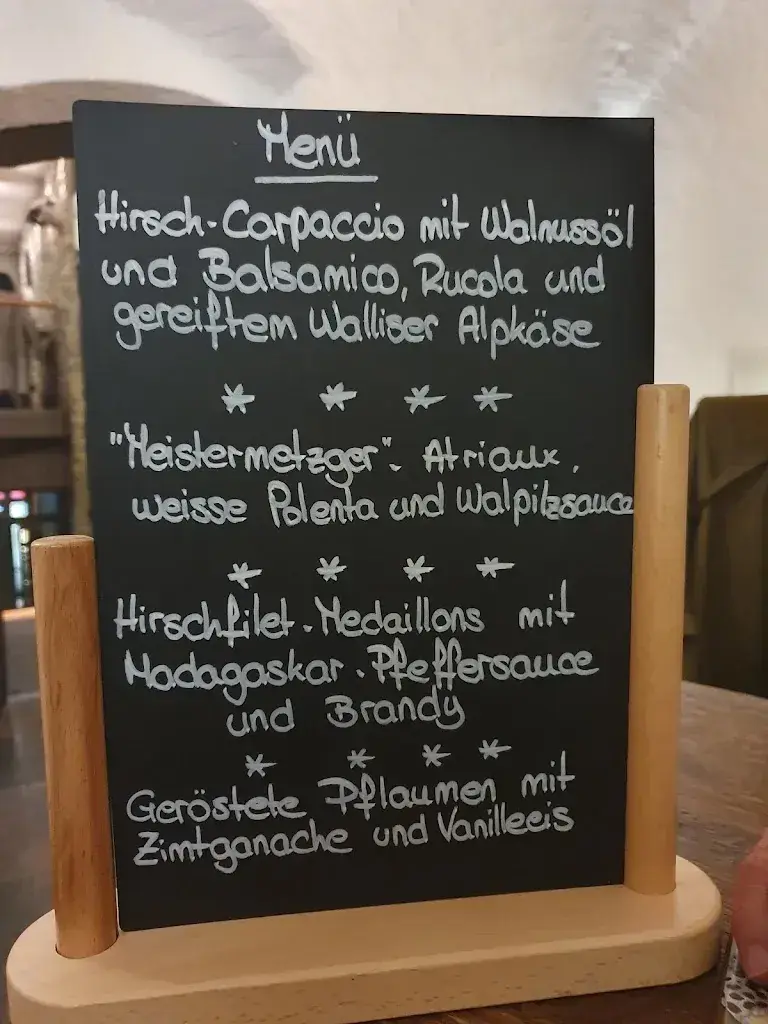 Menü
Hirsch-Carpaccio mit Walnussöl
und Balsamico, Rucola und
gereiftem Walliser Alpkäse
* * * *
"Meistermetzger"- Atriaux,
weisse Polenta und Walpilzsauce
* * * *
Hirschfilet-Medaillons mit
Madagaskar-Pfeffersauce
und Brandy
* * * *
Geröstete Pflaumen mit
Zimtganache und Vanilleeis